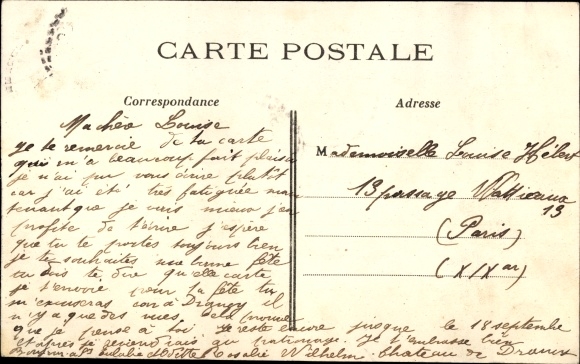 CARTE POSTALE
Correspondance
Adresse
Ma chère Louise
je te remercie de ta carte
qui m'a beaucoup fait plaisir
je n'ai pur vous écrire plutôt
car j'ai été très fatiguée main
tenant que je vais mieux j'en
profite de t'écrire j'espère
que tu te portes toujours bien
je te souhaites une bonne fête
tu dois te dire qu'elle carte
je t'envoie pour la fête tu
m'excuseras car à Drancy il
n'y a que des vues. cela prouve
que je pense à toi. je reste encore jusque le 18 septembre
et après je reviendrais au patronage. Je t'embrasse bien
Rosalie Wilhelm Château de
Mademoiselle Louise Hébert
13 passage Wattieaux
13
(Paris)
(XIX ar)